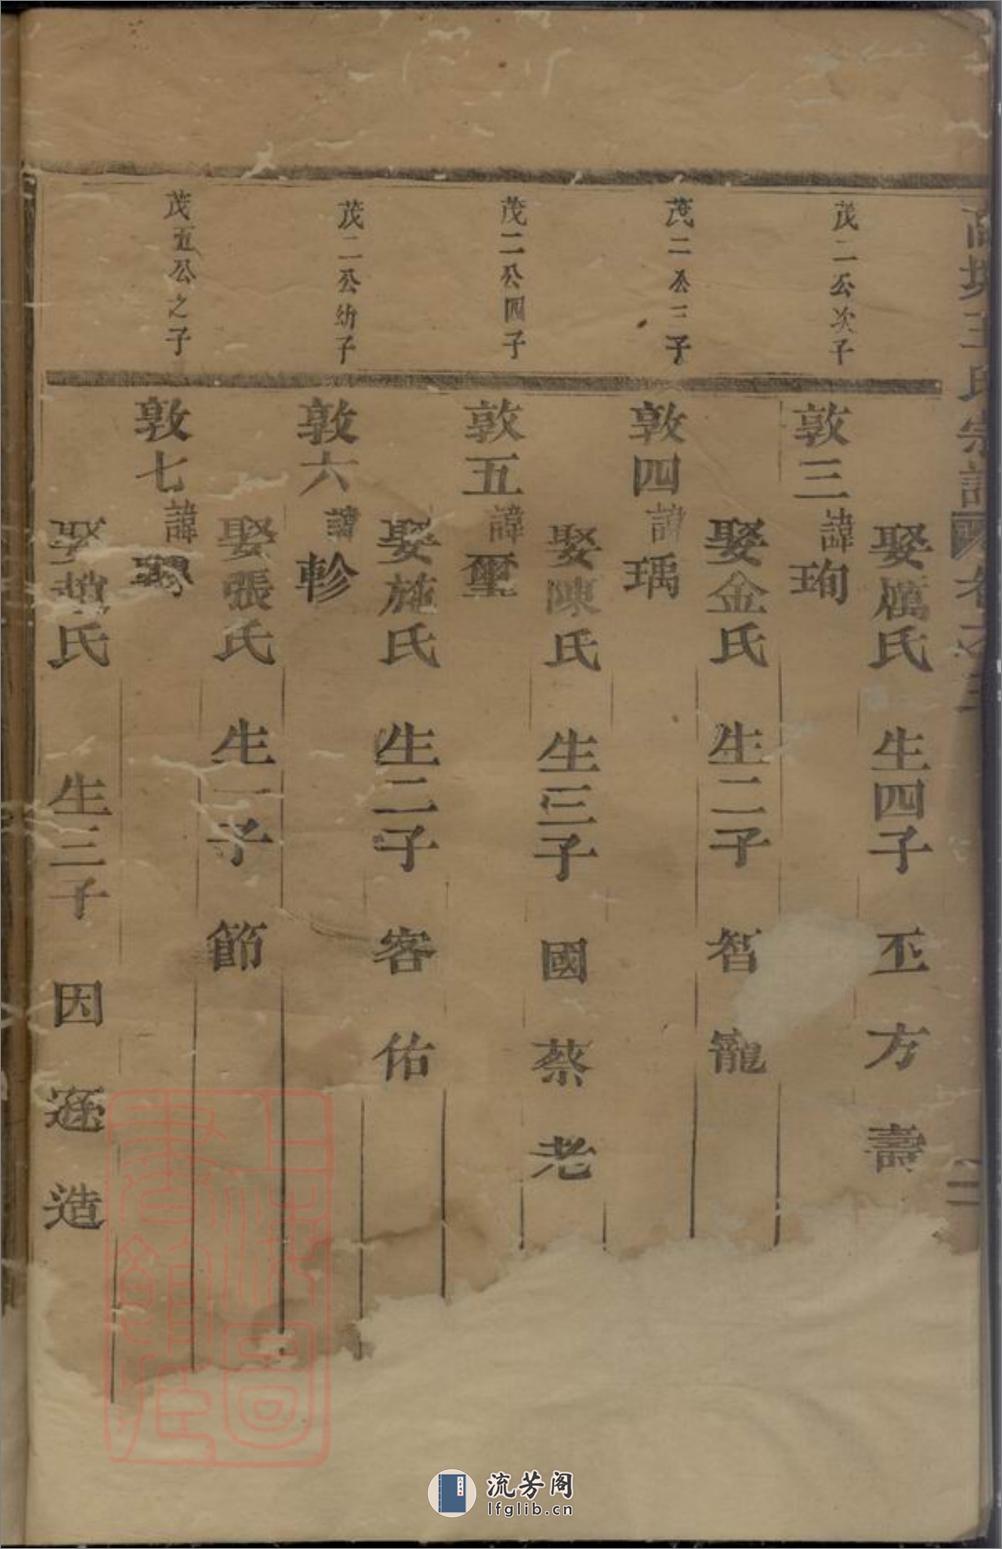 王氏宗譜
茂二公次子
敦三諱珣
娶厲氏 生四子 丕 方 壽
茂二公三子
敦四諱瑀
娶金氏 生二子 智 寵
茂二公四子
敦五諱璽
娶陳氏 生三子 國 蔡 老
茂二公幼子
敦六諱軫
娶施氏 生二子 客 佑
茂五公之子
敦七諱
娶張氏 生一子 節
娶趙氏 生三子 因 遜 造
上海圖書館藏
流芳阁
lfglib.cn